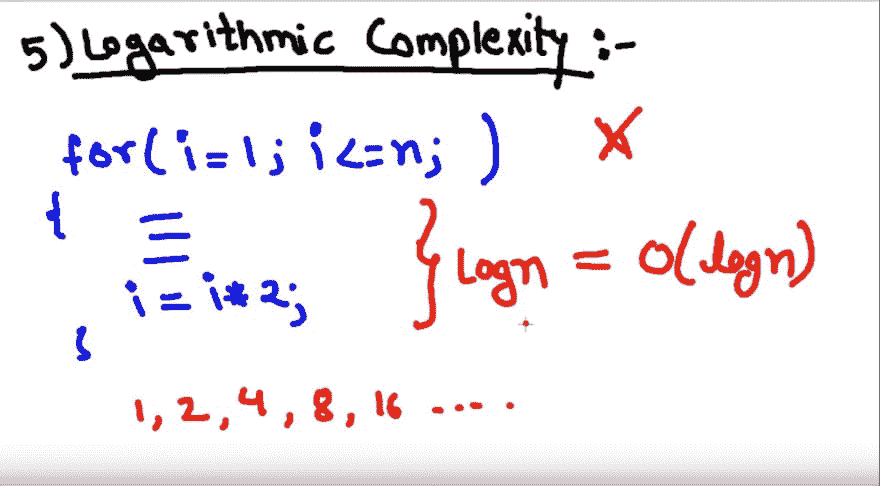 5) Logarithmic Complexity :-
for( i = 1; i <= n; ) X
{
} Logn = O(logn)
i = i * 2;
}
1, 2, 4, 8, 16 .....